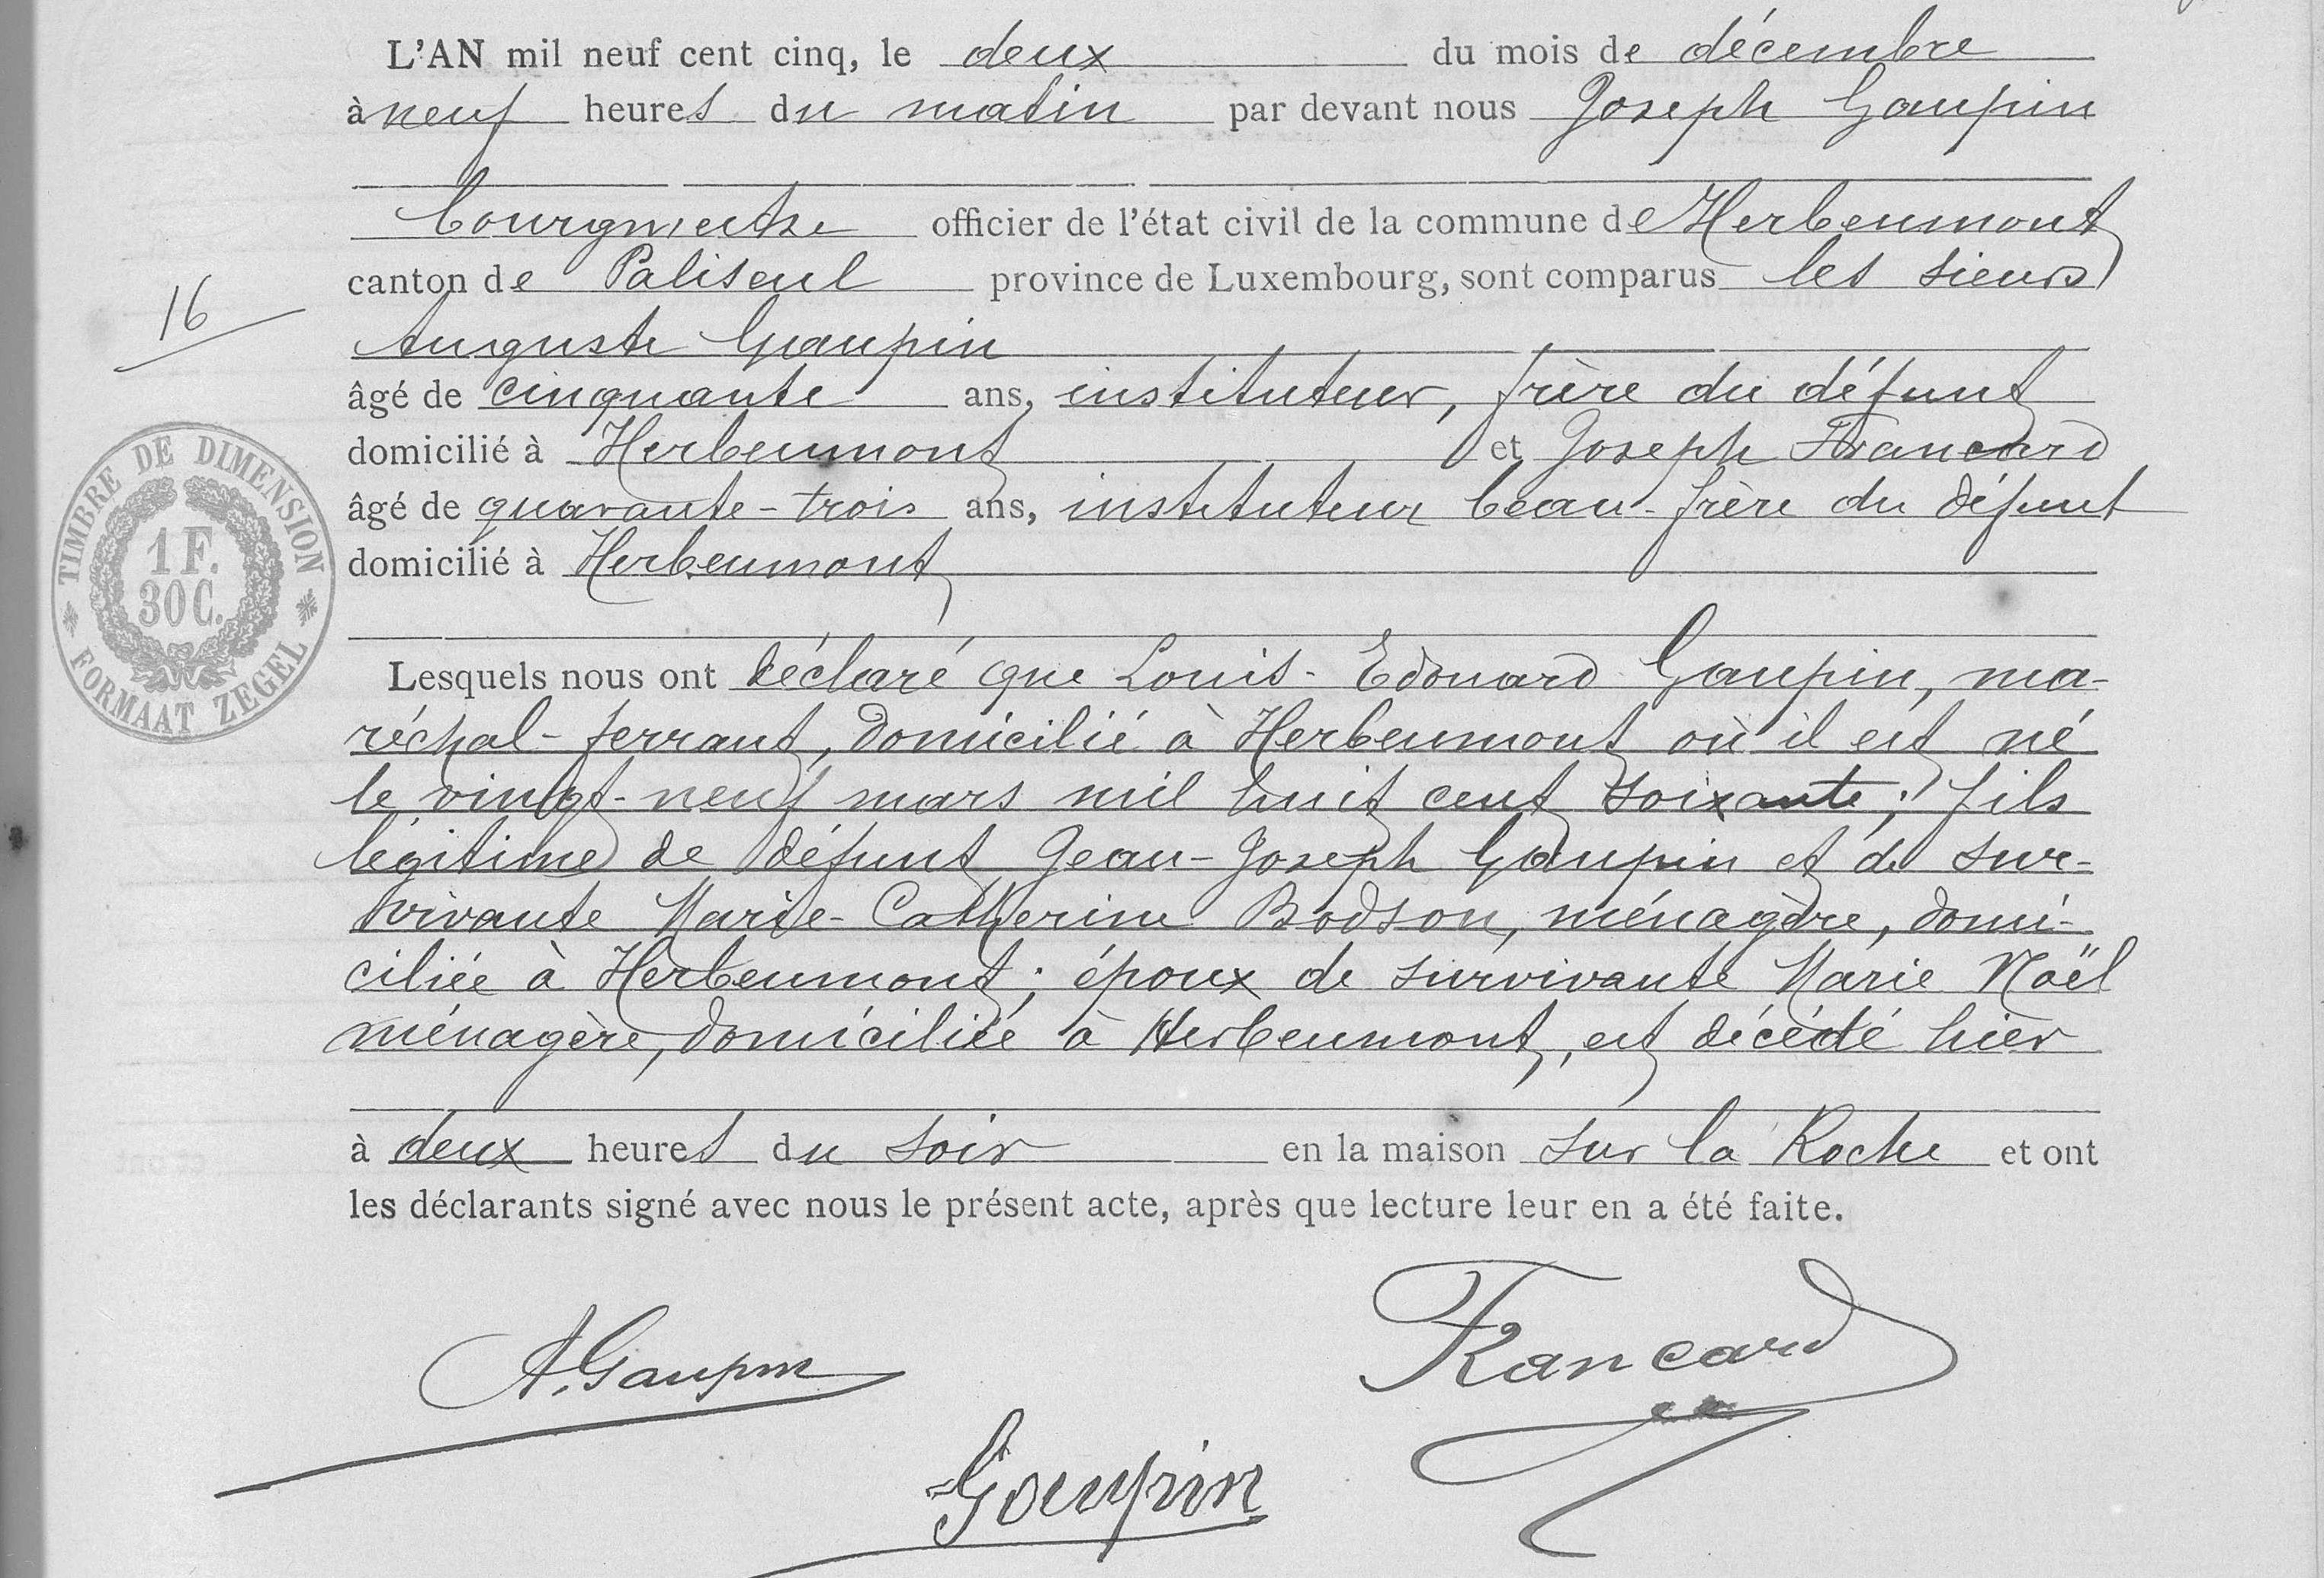 L'AN mil neuf cent cinq, le deux du mois de décembre
à neuf heures du matin par devant nous Joseph Gaupin
bourgmestre officier de l'état civil de la commune de Herbeumont
canton de Paliseul province de Luxembourg, sont comparus les sieurs
16
Auguste Gaupin
âgé de cinquante ans, instituteur, frère du défunt
domicilié à Herbeumont et Joseph Francard
âgé de quarante-trois ans, instituteur beau-frère du défunt
domicilié à Herbeumont
TIMBRE DE DIMENSION
1 F.
30 C.
FORMAAT ZEGEL
Lesquels nous ont déclaré que Louis-Edouard Gaupin, ma-
réchal-ferrant, domicilié à Herbeumont où il est né
le vingt-neuf mars mil huit cent soixante; fils
légitime de défunt Jean-Joseph Gaupin et de sur-
vivante Marie-Catherine Bodson, ménagère, domi-
ciliée à Herbeumont; époux de survivante Marie Noël
ménagère, domiciliée à Herbeumont, est décédé hier
à deux heures du soir en la maison sur la Roche et ont
les déclarants signé avec nous le présent acte, après que lecture leur en a été faite.
A. Gaupin
Francard
Gaupin